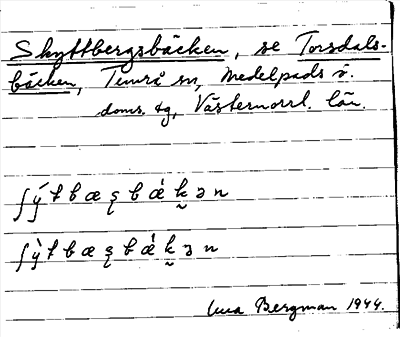 Skyttbergsbäcken, se Torsdals-
bäcken, Timrå sn, Medelpads ö.
doms. tg, Västernorrl. län.
ʃýtbæꞔbæ̀ḵən
ʃỳtbæꞔbæ̀ḵən
Bergman 1944.